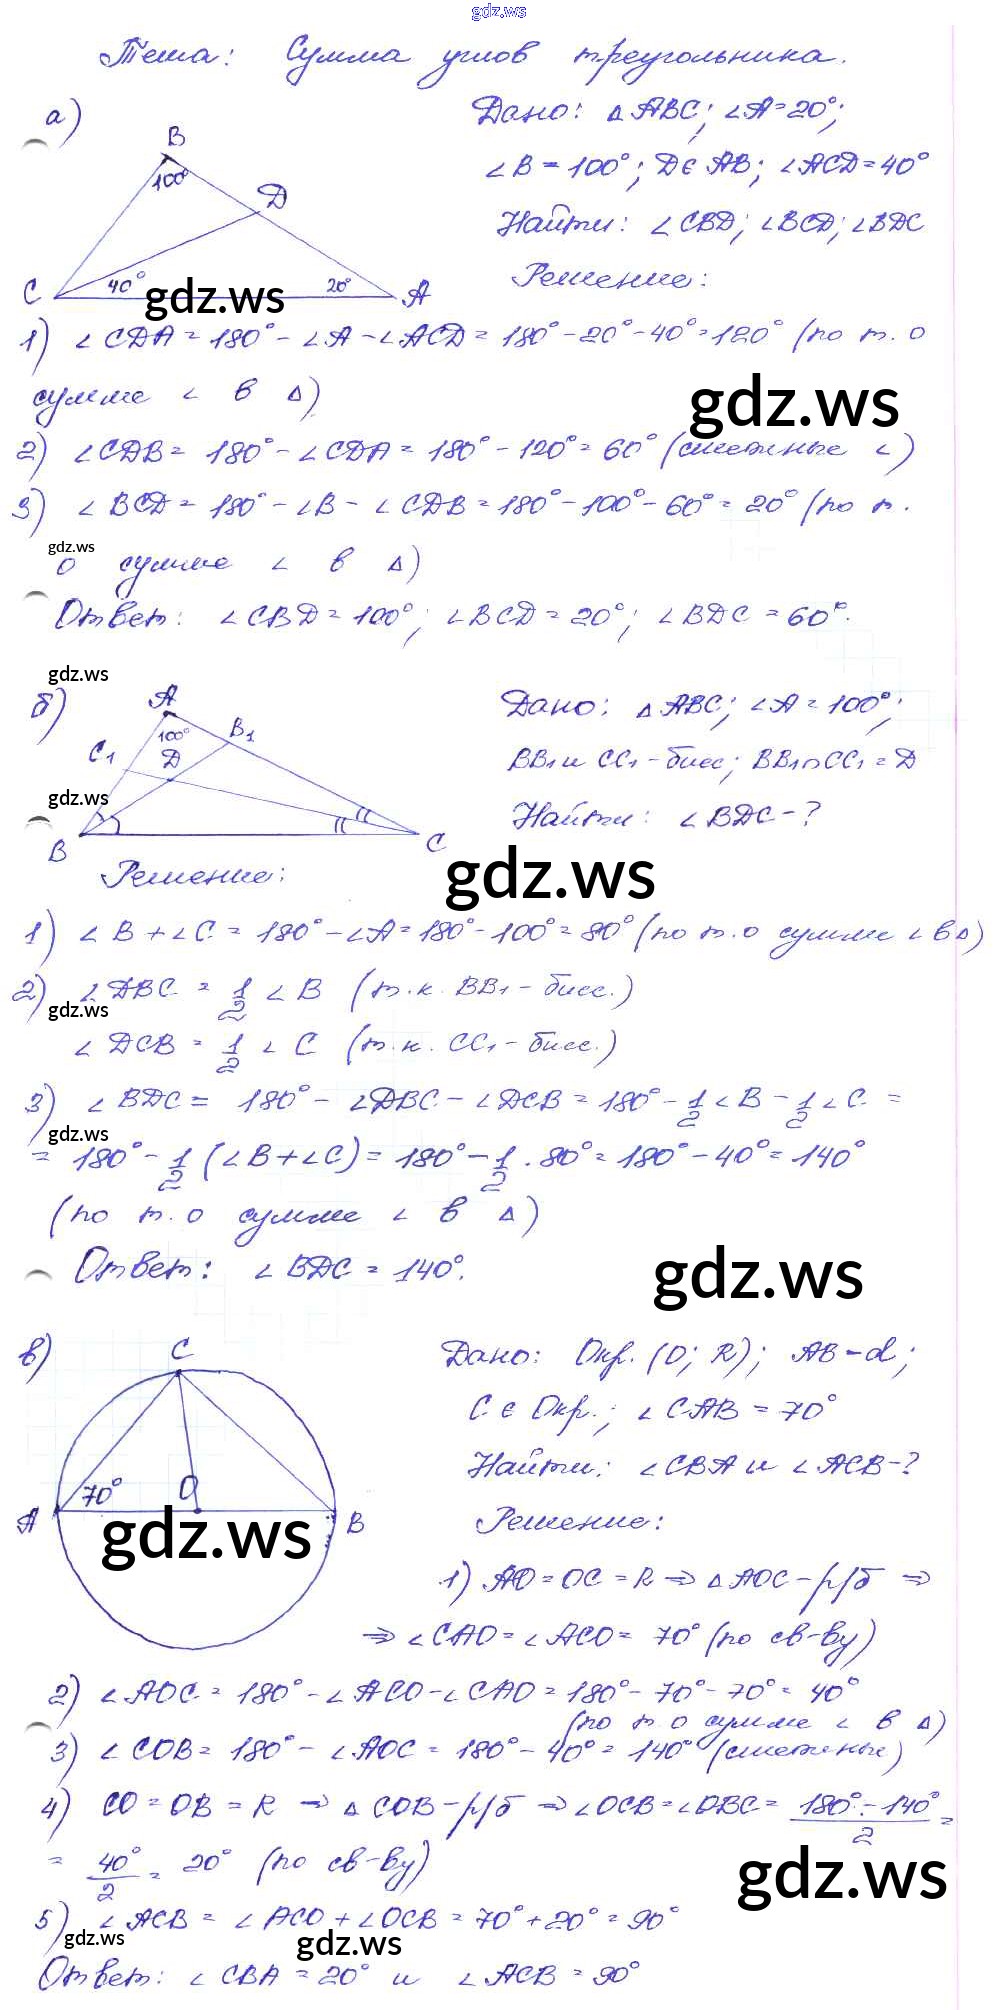 gdz.ws
Тема: Сумма углов треугольника.
а)
B
100°
D
C
40°
20°
A
gdz.ws
Дано: △ABC; ∠A=20°;
∠B=100°; D∈AB; ∠ACD=40°
Найти: ∠CBD; ∠BCD; ∠BDC
Решение:
1) ∠CDA=180°-∠A-∠ACD=180°-20°-40°=120° (по т. о
сумме ∠ в △)
gdz.ws
2) ∠CDB=180°-∠CDA=180°-120°=60° (смежные ∠)
3) ∠BCD=180°-∠B-∠CDB=180°-100°-60°=20° (по т.
gdz.ws
о сумме ∠ в △)
Ответ: ∠CBD=100°; ∠BCD=20°; ∠BDC=60°.
gdz.ws
б)
A
100°
B₁
C₁
D
gdz.ws
B
C
gdz.ws
Дано: △ABC; ∠A=100°;
BB₁ и CC₁-бисс; BB₁∩CC₁=D
Найти: ∠BDC-?
Решение:
1) ∠B+∠C=180°-∠A=180°-100°=80° (по т.о сумме ∠ в △)
2) ∠DBC=1/2 ∠B (т.к. BB₁-бисс.)
gdz.ws
∠DCB=1/2 ∠C (т.к. CC₁-бисс.)
3) ∠BDC=180°-∠DBC-∠DCB=180°-1/2∠B-1/2∠C=
gdz.ws
=180°-1/2(∠B+∠C)=180°-1/2·80°=180°-40°=140°
(по т.о сумме ∠ в △)
Ответ: ∠BDC=140°.
gdz.ws
в)
C
70°
O
A
B
gdz.ws
Дано: Окр.(O; R); AB-d;
C∈Окр.; ∠CAB=70°
Найти: ∠CBA и ∠ACB-?
Решение:
1) AO=OC=R⇒△AOC-р/б⇒
⇒∠CAO=∠ACO=70° (по св-ву)
2) ∠AOC=180°-∠ACO-∠CAO=180°-70°-70°=40°
(по т.о сумме ∠ в △)
3) ∠COB=180°-∠AOC=180°-40°=140° (смежные)
4) CO=OB=R⇒△COB-р/б⇒∠OCB=∠OBC=(180°-140°)/2=
=40°/2=20° (по св-ву)
gdz.ws
5) ∠ACB=∠ACO+∠OCB=70°+20°=90°
gdz.ws
gdz.ws
Ответ: ∠CBA=20° и ∠ACB=90°